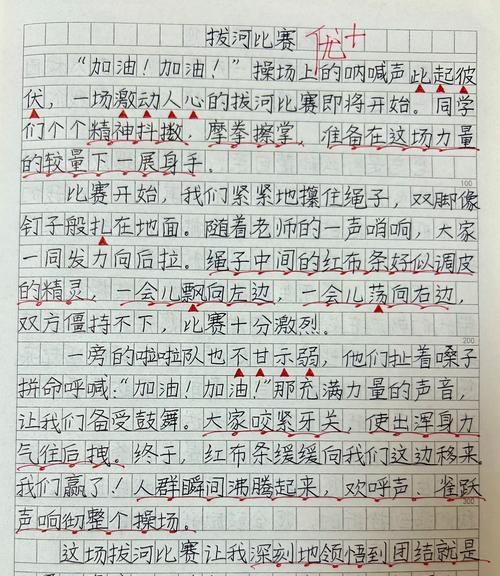 拔河比赛 优+
“加油！加油！”操场上的呐喊声此起彼
伏，一场激动人心的拔河比赛即将开始。同学
们个个精神抖擞，摩拳擦掌，准备在这场力量
的较量下一展身手。
100
比赛开始，我们紧紧地攥住绳子，双脚像
钉子般扎在地面。随着老师的一声哨响，大家
一同发力向后拉。绳子中间的红布条好似调皮
的精灵，一会儿飘向左边，一会儿荡向右边，
双方僵持不下，比赛十分激烈。
200
一旁的啦啦队也不甘示弱，他们扯着嗓子
拼命呼喊：“加油！加油！”那充满力量的声音，
让我们备受鼓舞。大家咬紧牙关，使出浑身力
气往后拽。终于，红布条缓缓向我们这边移来
我们赢了！人群瞬间沸腾起来，欢呼声、雀跃
300
声响彻整个操场。
这场拔河比赛让我深刻地领悟到团结就是